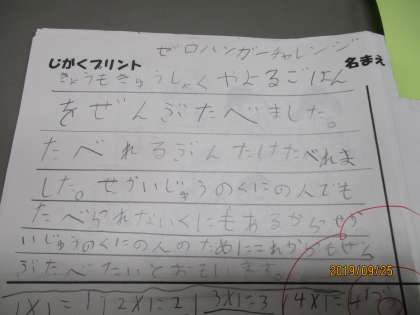 ゼロハンガーチャレンジ
じがくプリント 名まえ
きょうもきゅうしょくやよるごはん
をぜんぶたべました。
たべれるぶんだけたべれま
した。せかいじゅうのくにの人でも
たべられないくにもあるからせか
いじゅうのくにの人のためにこれからもぜん
ぶたべたいとおもいます。
1×1=1 2×1=2 3×1=3 4×1=4
2019/09/25